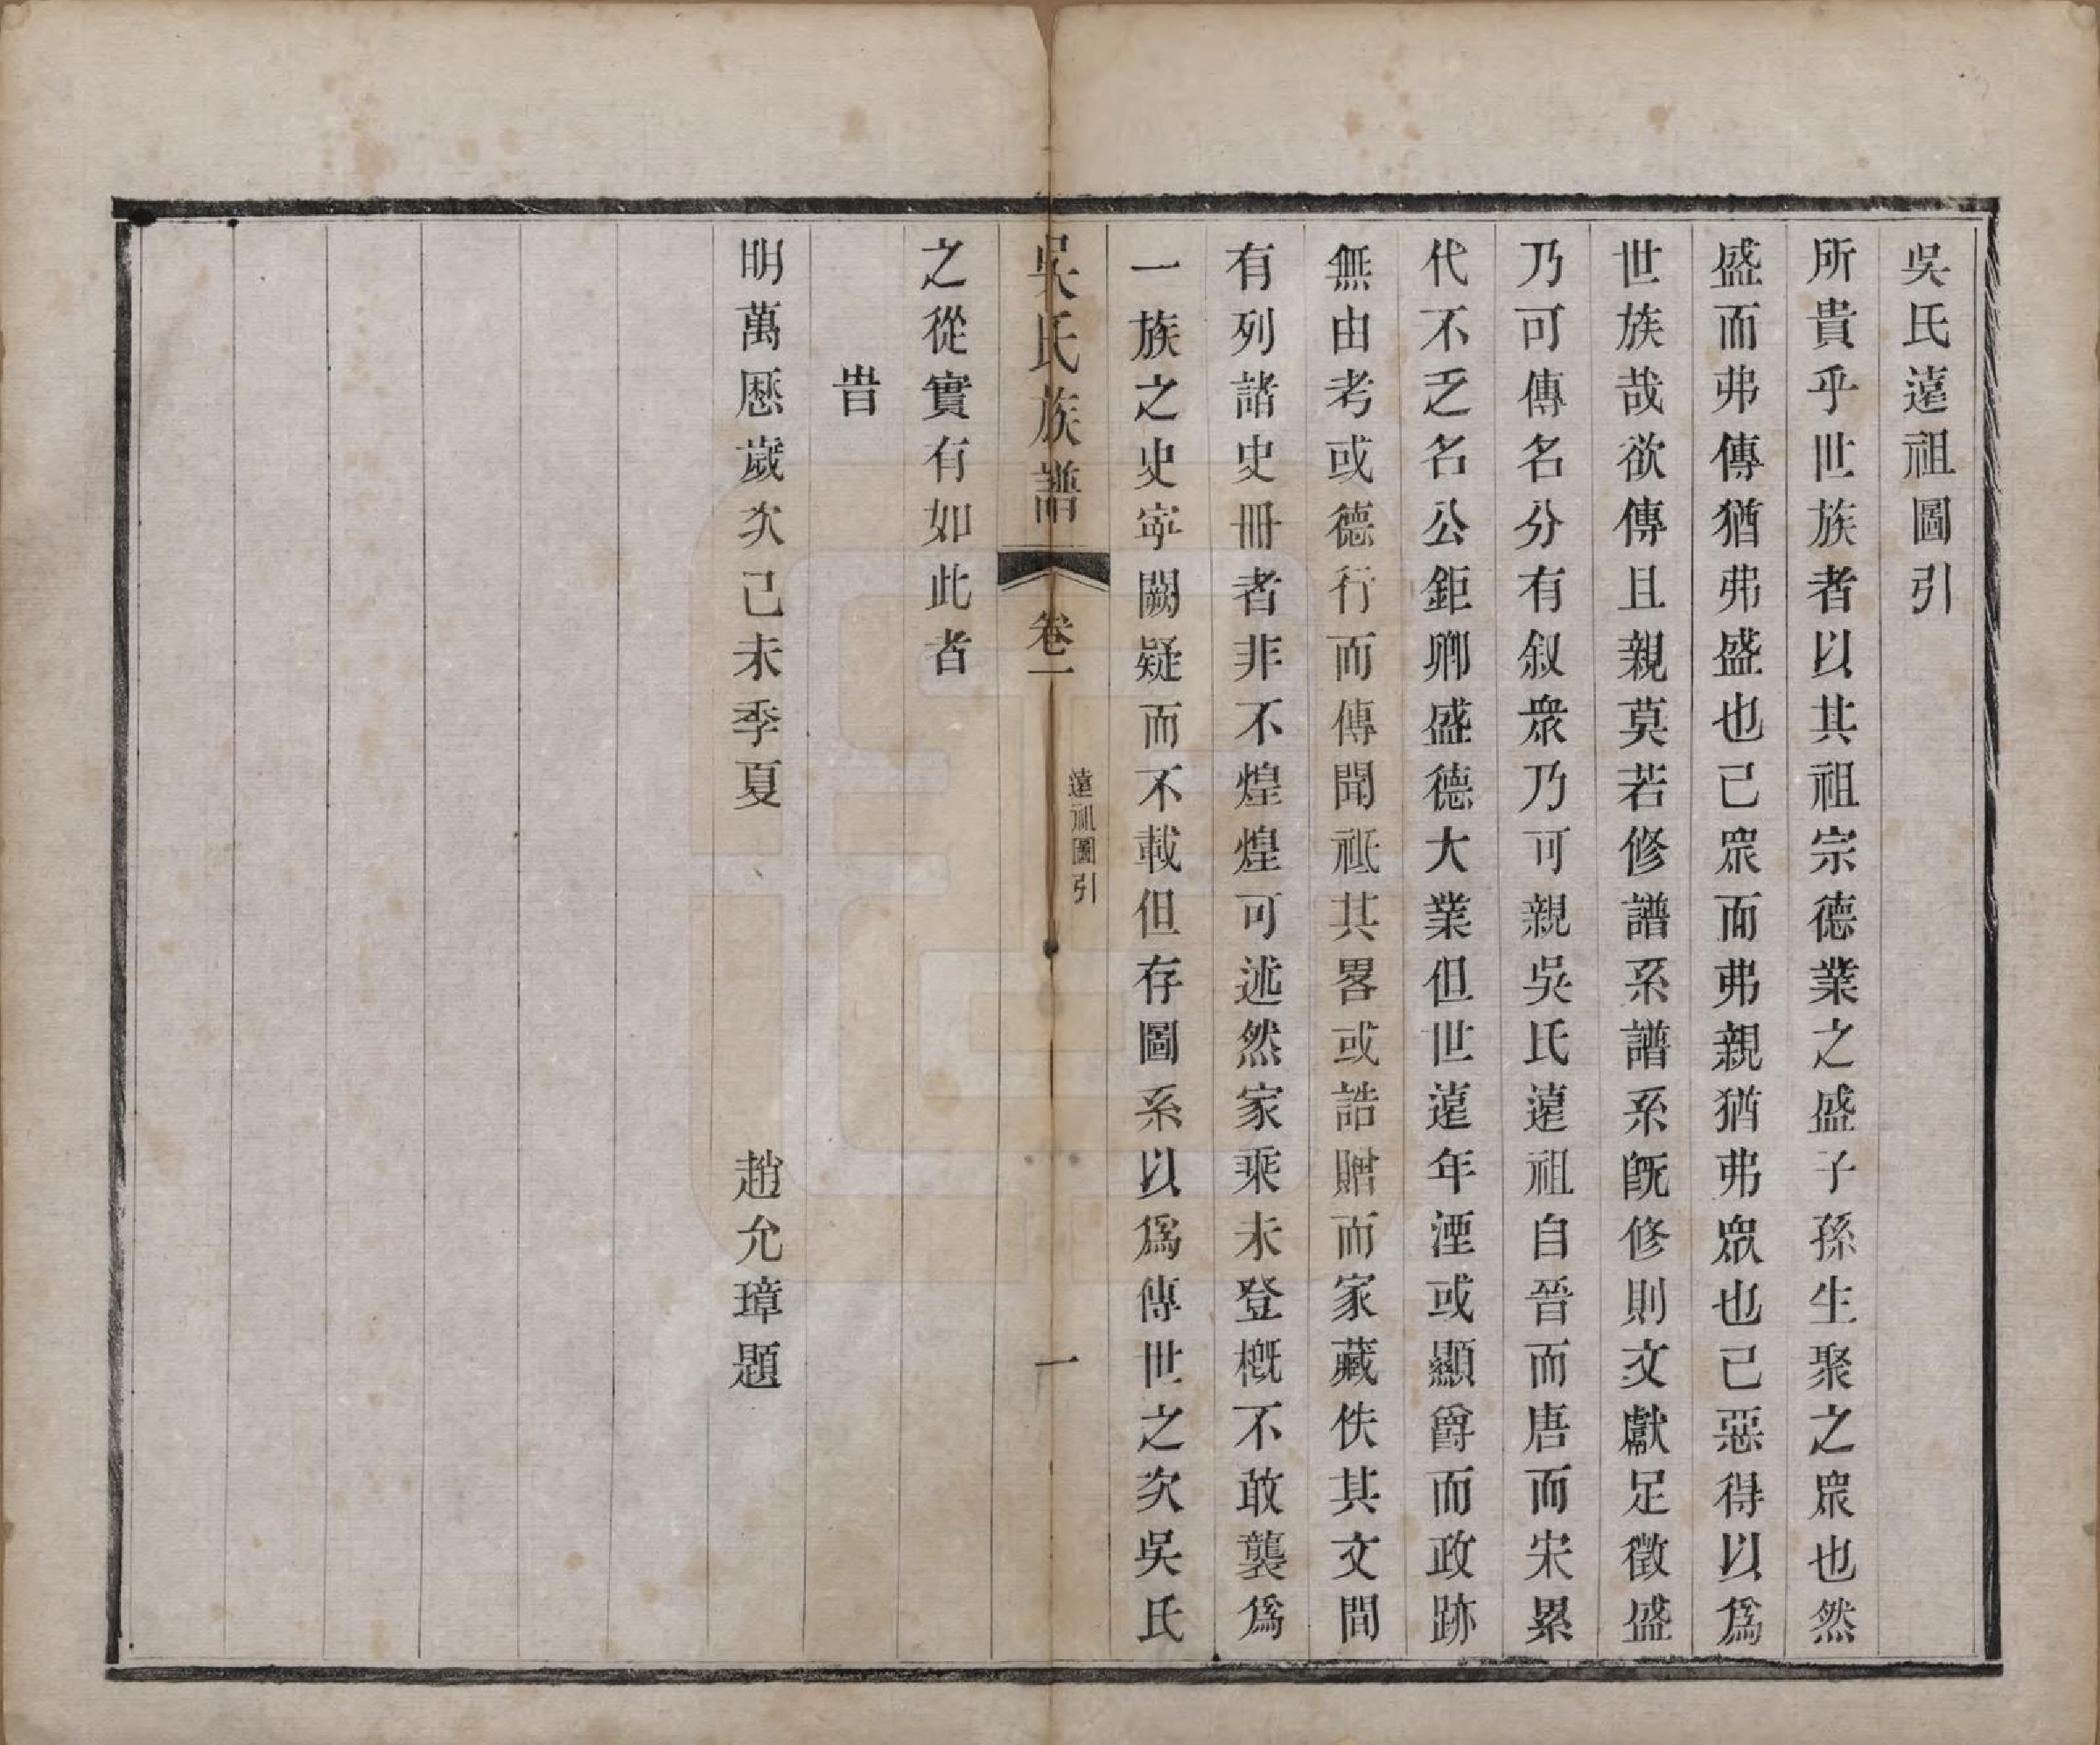 吳氏遠祖圖引
所貴乎世族者以其祖宗德業之盛子孫生聚之眾也然
盛而弗傳猶弗盛也已眾而弗親猶弗眾也已惡得以爲
世族哉欲傳且親莫若修譜系譜系旣修則文獻足徵盛
乃可傳名分有叙衆乃可親吳氏遠祖自晉而唐而宋累
代不乏名公鉅卿盛德大業但世遠年湮或顯爵而政跡
無由考或德行而傳聞祗其畧或誥贈而家藏佚其文間
有列諸史冊者非不煌煌可述然家乘未登槪不敢襲爲
一族之史寕闕疑而不載但存圖系以爲傳世之次吳氏
吳氏族譜 卷一 遠祖圖引 一
之從實有如此者
旹
明萬厯歲次己未季夏 趙允璋題